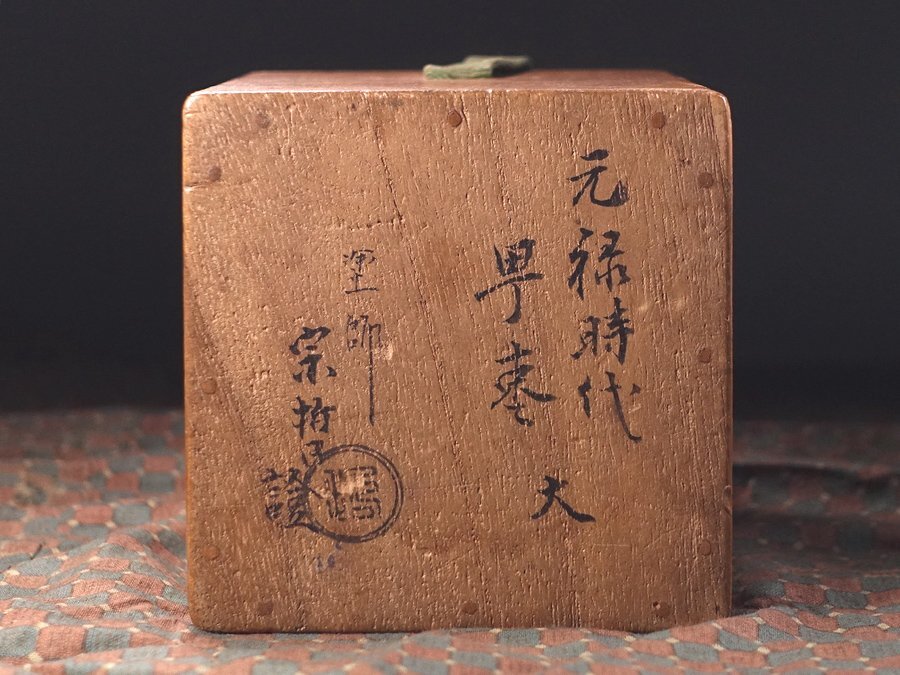 元禄時代
甼棗
大
塗師
宗哲
證